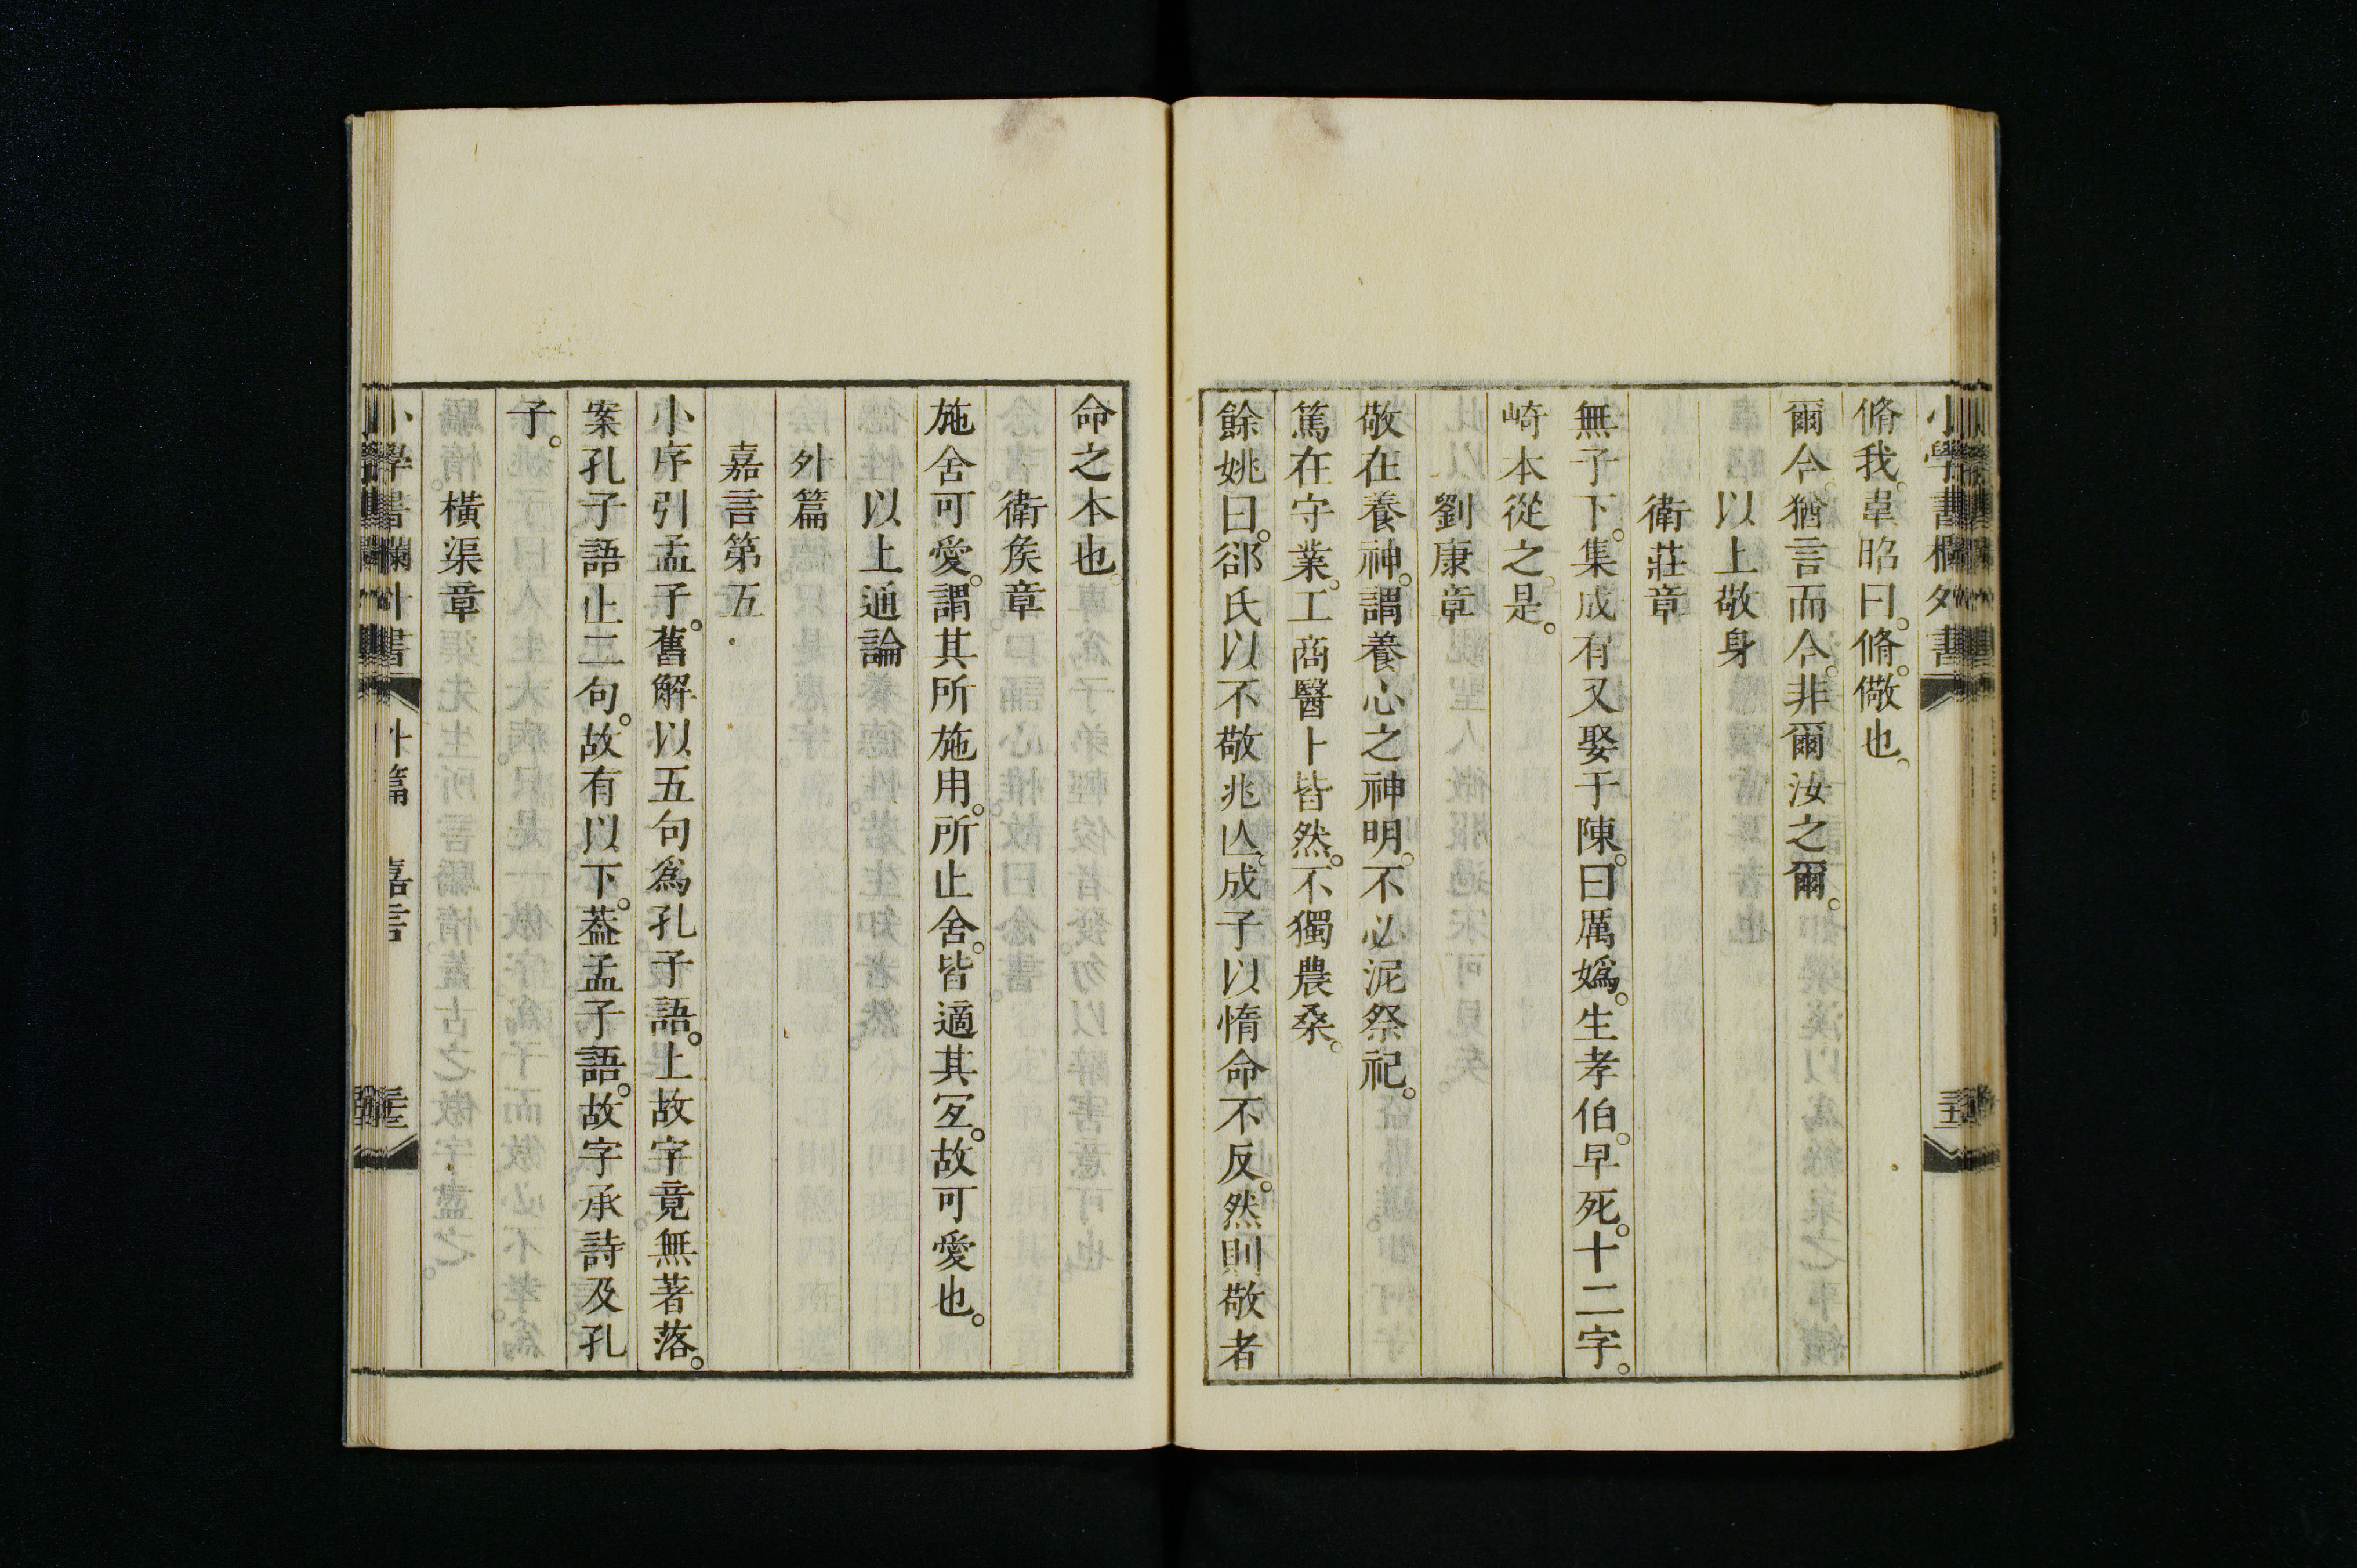 小學書欄外書
脩我。韋昭曰。脩。儆也。
爾今。猶言而今。非爾汝之爾。
以上敬身
衛莊章
無子下。集成有又娶于陳。曰厲媯。生孝伯。早死。十二字。
崎本從之。是。
劉康章
敬在養神。謂養心之神明。不必泥祭祀。
篤在守業。工商醫卜皆然。不獨農桑。
餘姚曰。郤氏以不敬兆亾。成子以惰命不反。然則敬者
命之本也。
衛矦章
施舍可愛。謂其所施用。所止舍。皆適其冝。故可愛也。
以上通論
外篇
嘉言第五
小序引孟子。舊解以五句爲孔子語。上故字竟無著落。
案孔子語止二句。故有以下。葢孟子語。故字承詩及孔
子。
橫渠章
小學書欄外書 外篇 嘉言